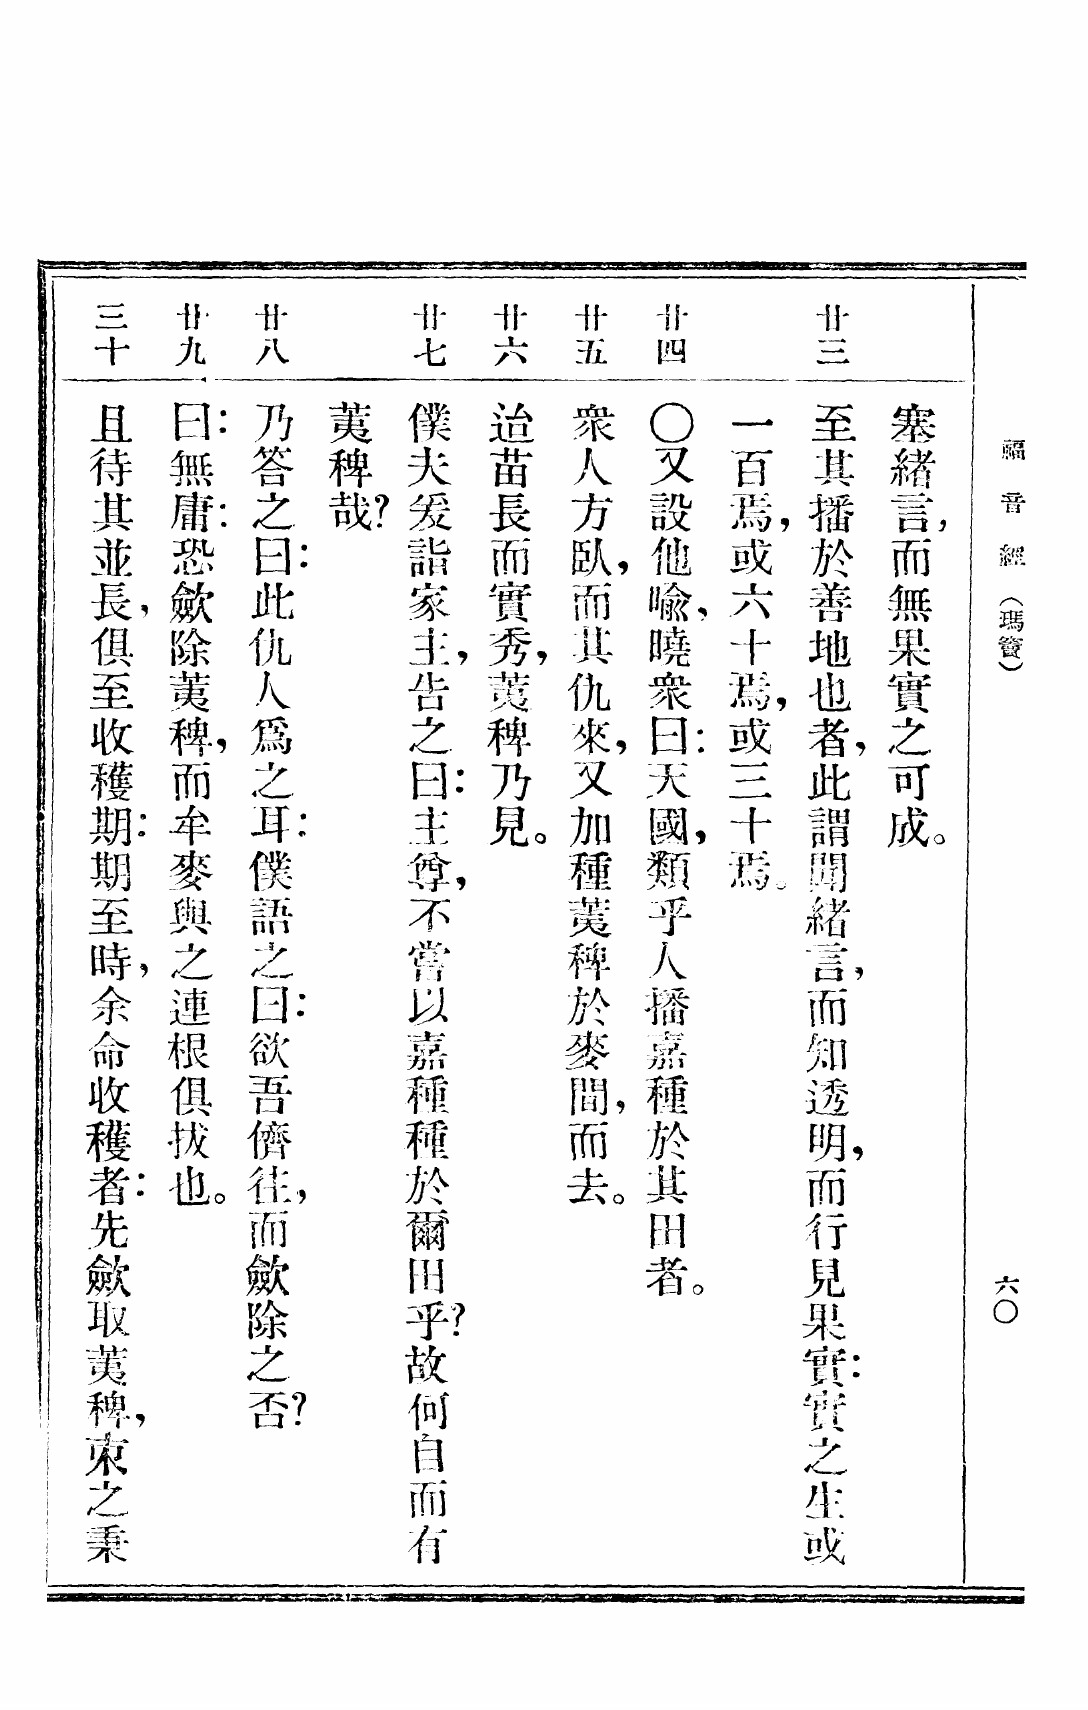 福音經（瑪竇） 六〇
塞緒言，而無果實之可成。
廿三 至其播於善地也者，此謂聞緒言，而知透明，而行見果實：實之生或
一百焉，或六十焉，或三十焉。
廿四 〇又設他喩，曉衆曰：天國，類乎人播嘉種於其田者。
廿五 衆人方臥，而其仇來，又加種荑稗於麥間，而去。
廿六 迨苗長而實秀，荑稗乃見。
廿七 僕夫爰詣家主，告之曰：主尊，不嘗以嘉種種於爾田乎？故何自而有
荑稗哉？
廿八 乃答之曰：此仇人爲之耳：僕語之曰：欲吾儕往，而歛除之否？
廿九 曰：無庸：恐歛除荑稗，而牟麥與之連根俱拔也。
三十 且待其並長，俱至收穫期：期至時，余命收穫者：先歛取荑稗，束之秉